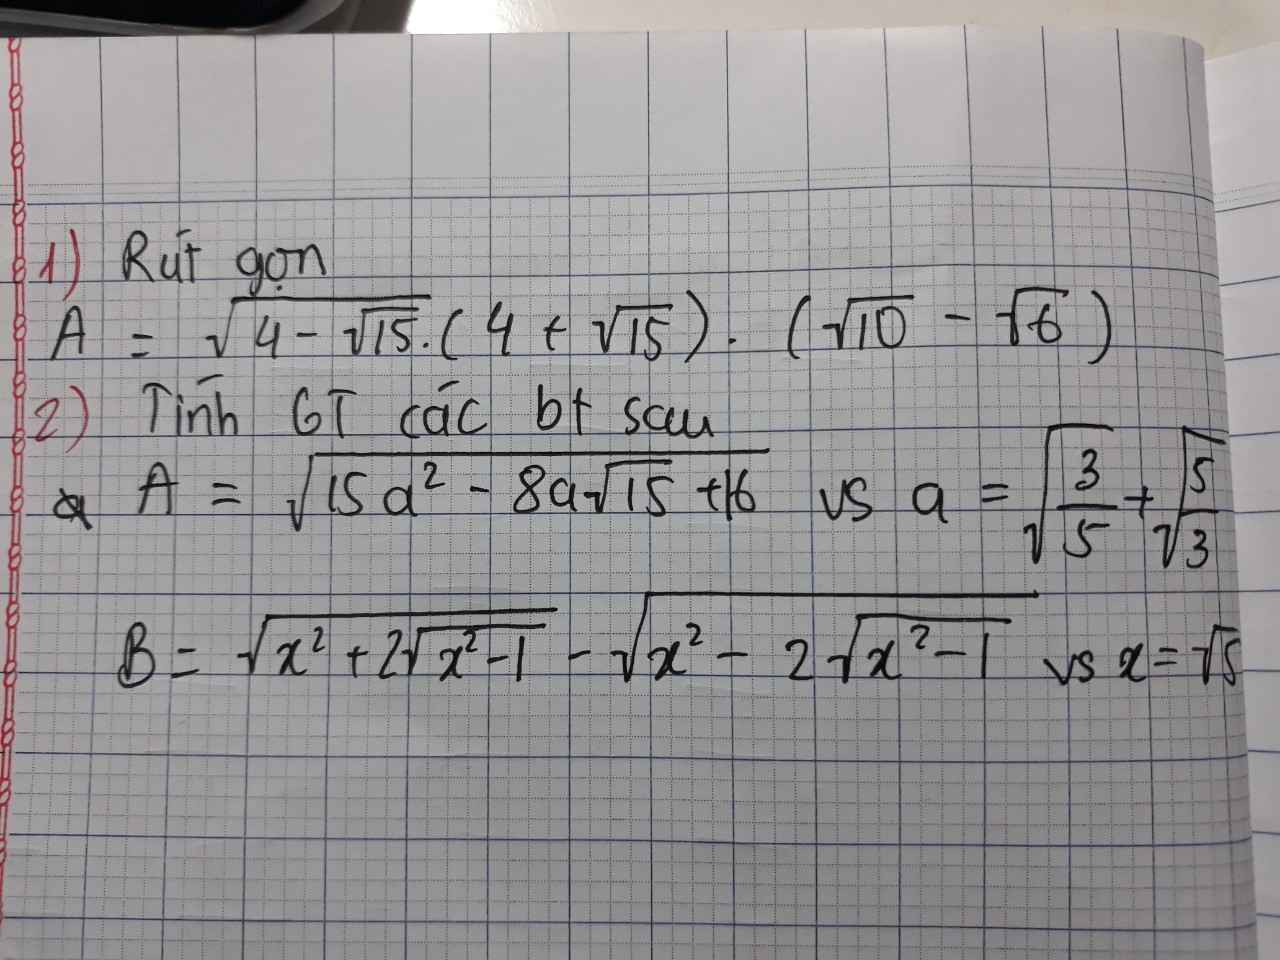 1) Rút gọn
A = √(4 - √15) . (4 + √15) . (√10 - √6)
2) Tính GT các bt sau
a A = √(15a² - 8a√15 + 16) vs a = √(3/5) + √(5/3)
B = √(x² + 2√(x² - 1)) - √(x² - 2√(x² - 1)) vs x = √5